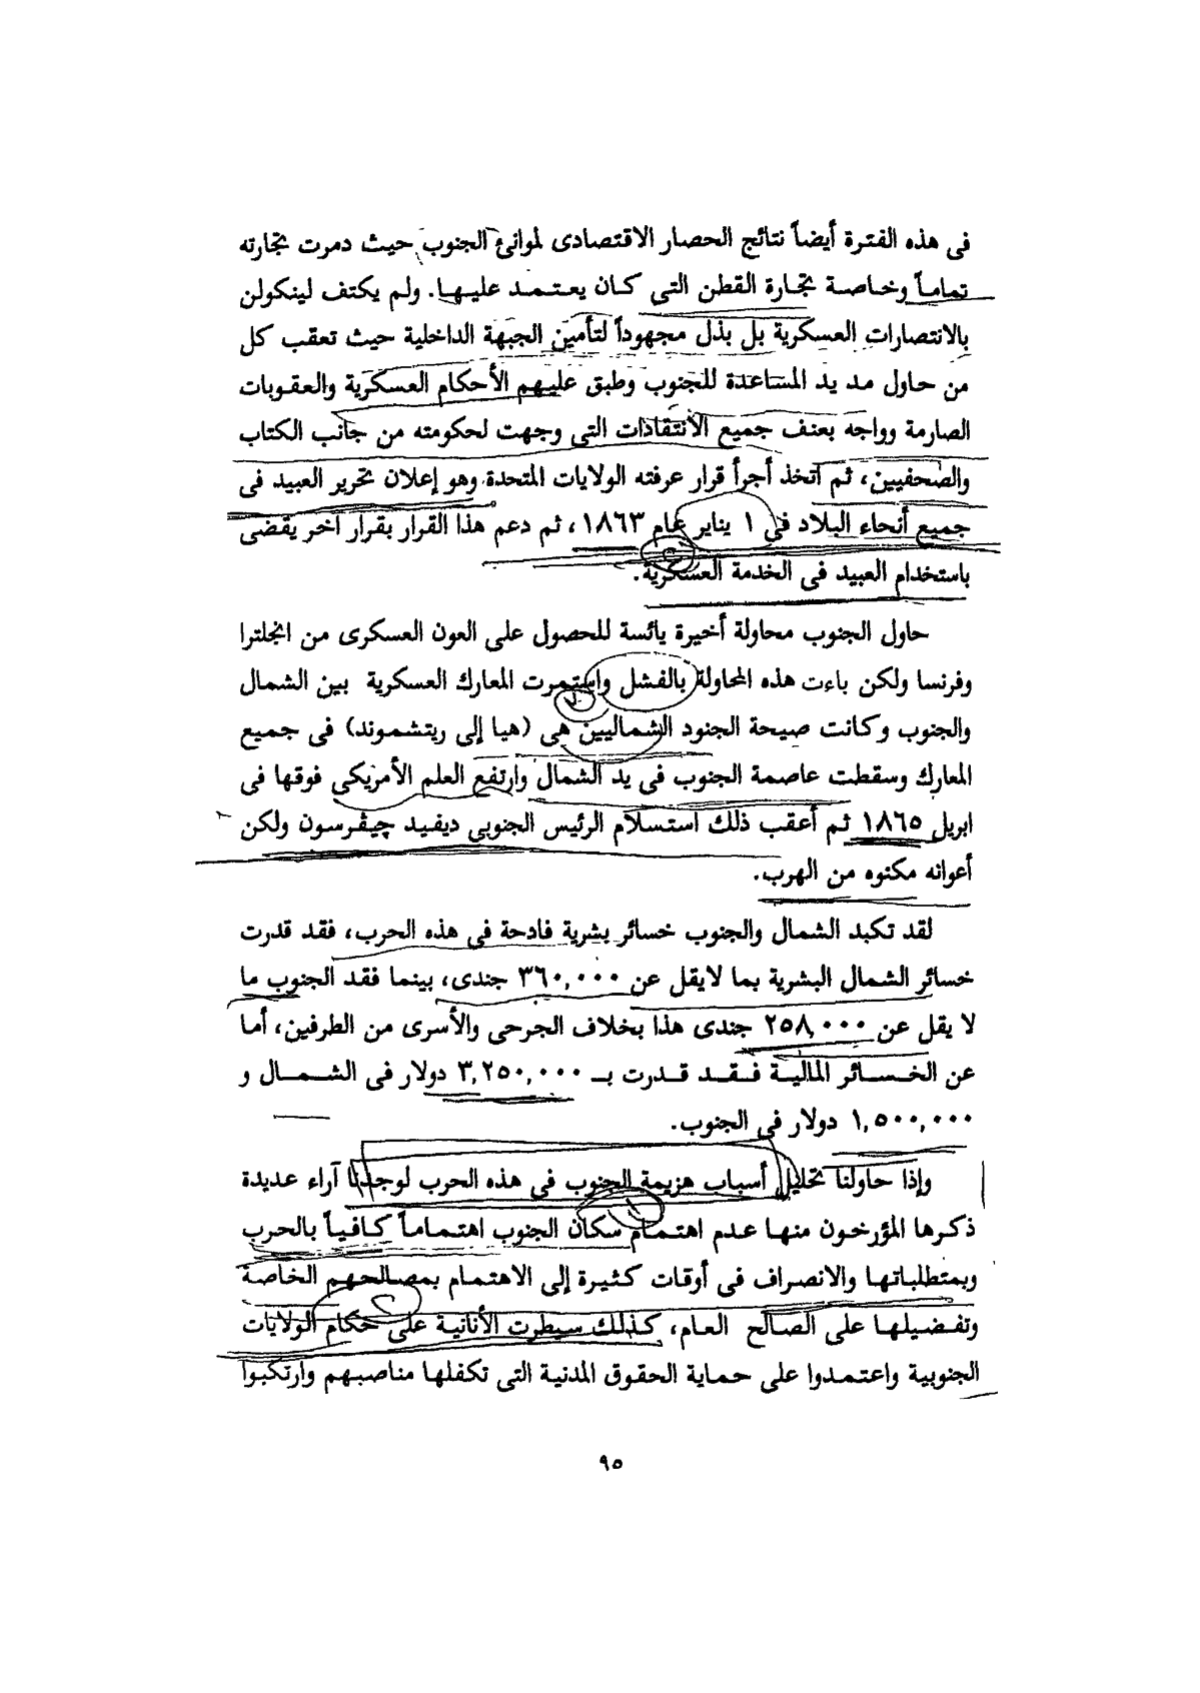 فى هذه الفترة أيضاً نتائج الحصار الاقتصادى لموانئ الجنوب حيث دمرت تجارته
تماماً وخاصة تجارة القطن التى كان يعتمد عليها. ولم يكتف لينكولن
بالانتصارات العسكرية بل بذل مجهوداً لتأمين الجبهة الداخلية حيث تعقب كل
من حاول مد يد المساعدة للجنوب وطبق عليهم الأحكام العسكرية والعقوبات
الصارمة وواجه بعنف جميع الأنتقادات التى وجهت لحكومته من جانب الكتاب
والصحفيين، ثم اتخذ أجرأ قرار عرفته الولايات المتحدة وهو إعلان تحرير العبيد فى
جميع أنحاء البلاد فى ١ يناير عام ١٨٦٣، ثم دعم هذا القرار بقرار آخر يقضى
باستخدام العبيد فى الخدمة العسكرية.
حاول الجنوب محاولة أخيرة يائسة للحصول على العون العسكرى من انجلترا
وفرنسا ولكن باءت هذه المحاولة بالفشل واستمرت المعارك العسكرية بين الشمال
والجنوب وكانت صيحة الجنود الشماليين هى (هيا إلى ريتشموند) فى جميع
المعارك وسقطت عاصمة الجنوب فى يد الشمال وارتفع العلم الأمريكى فوقها فى
ابريل ١٨٦٥ ثم أعقب ذلك استسلام الرئيس الجنوبى ديفيد چيفرسون ولكن
أعوانه مكنوه من الهرب.
لقد تكبد الشمال والجنوب خسائر بشرية فادحة فى هذه الحرب، فقد قدرت
خسائر الشمال البشرية بما لايقل عن ٣٦٠,٠٠٠ جندى، بينما فقد الجنوب ما
لا يقل عن ٢٥٨,٠٠٠ جندى هذا بخلاف الجرحى والأسرى من الطرفين، أما
عن الخسائر المالية فقد قدرت بـ ٣,٢٥٠,٠٠٠ دولار فى الشمال و
١,٥٠٠,٠٠٠ دولار فى الجنوب.
وإذا حاولنا تحليل أسباب هزيمة الجنوب فى هذه الحرب لوجدنا آراء عديدة
ذكرها المؤرخون منها عدم اهتمام سكان الجنوب اهتماماً كافياً بالحرب
وبمتطلباتها والانصراف فى أوقات كثيرة إلى الاهتمام بمصالحهم الخاصة
وتفضيلها على الصالح العام، كذلك سيطرت الأنانية على حكام الولايات
الجنوبية واعتمدوا على حماية الحقوق المدنية التى تكفلها مناصبهم وارتكبوا
٩٥